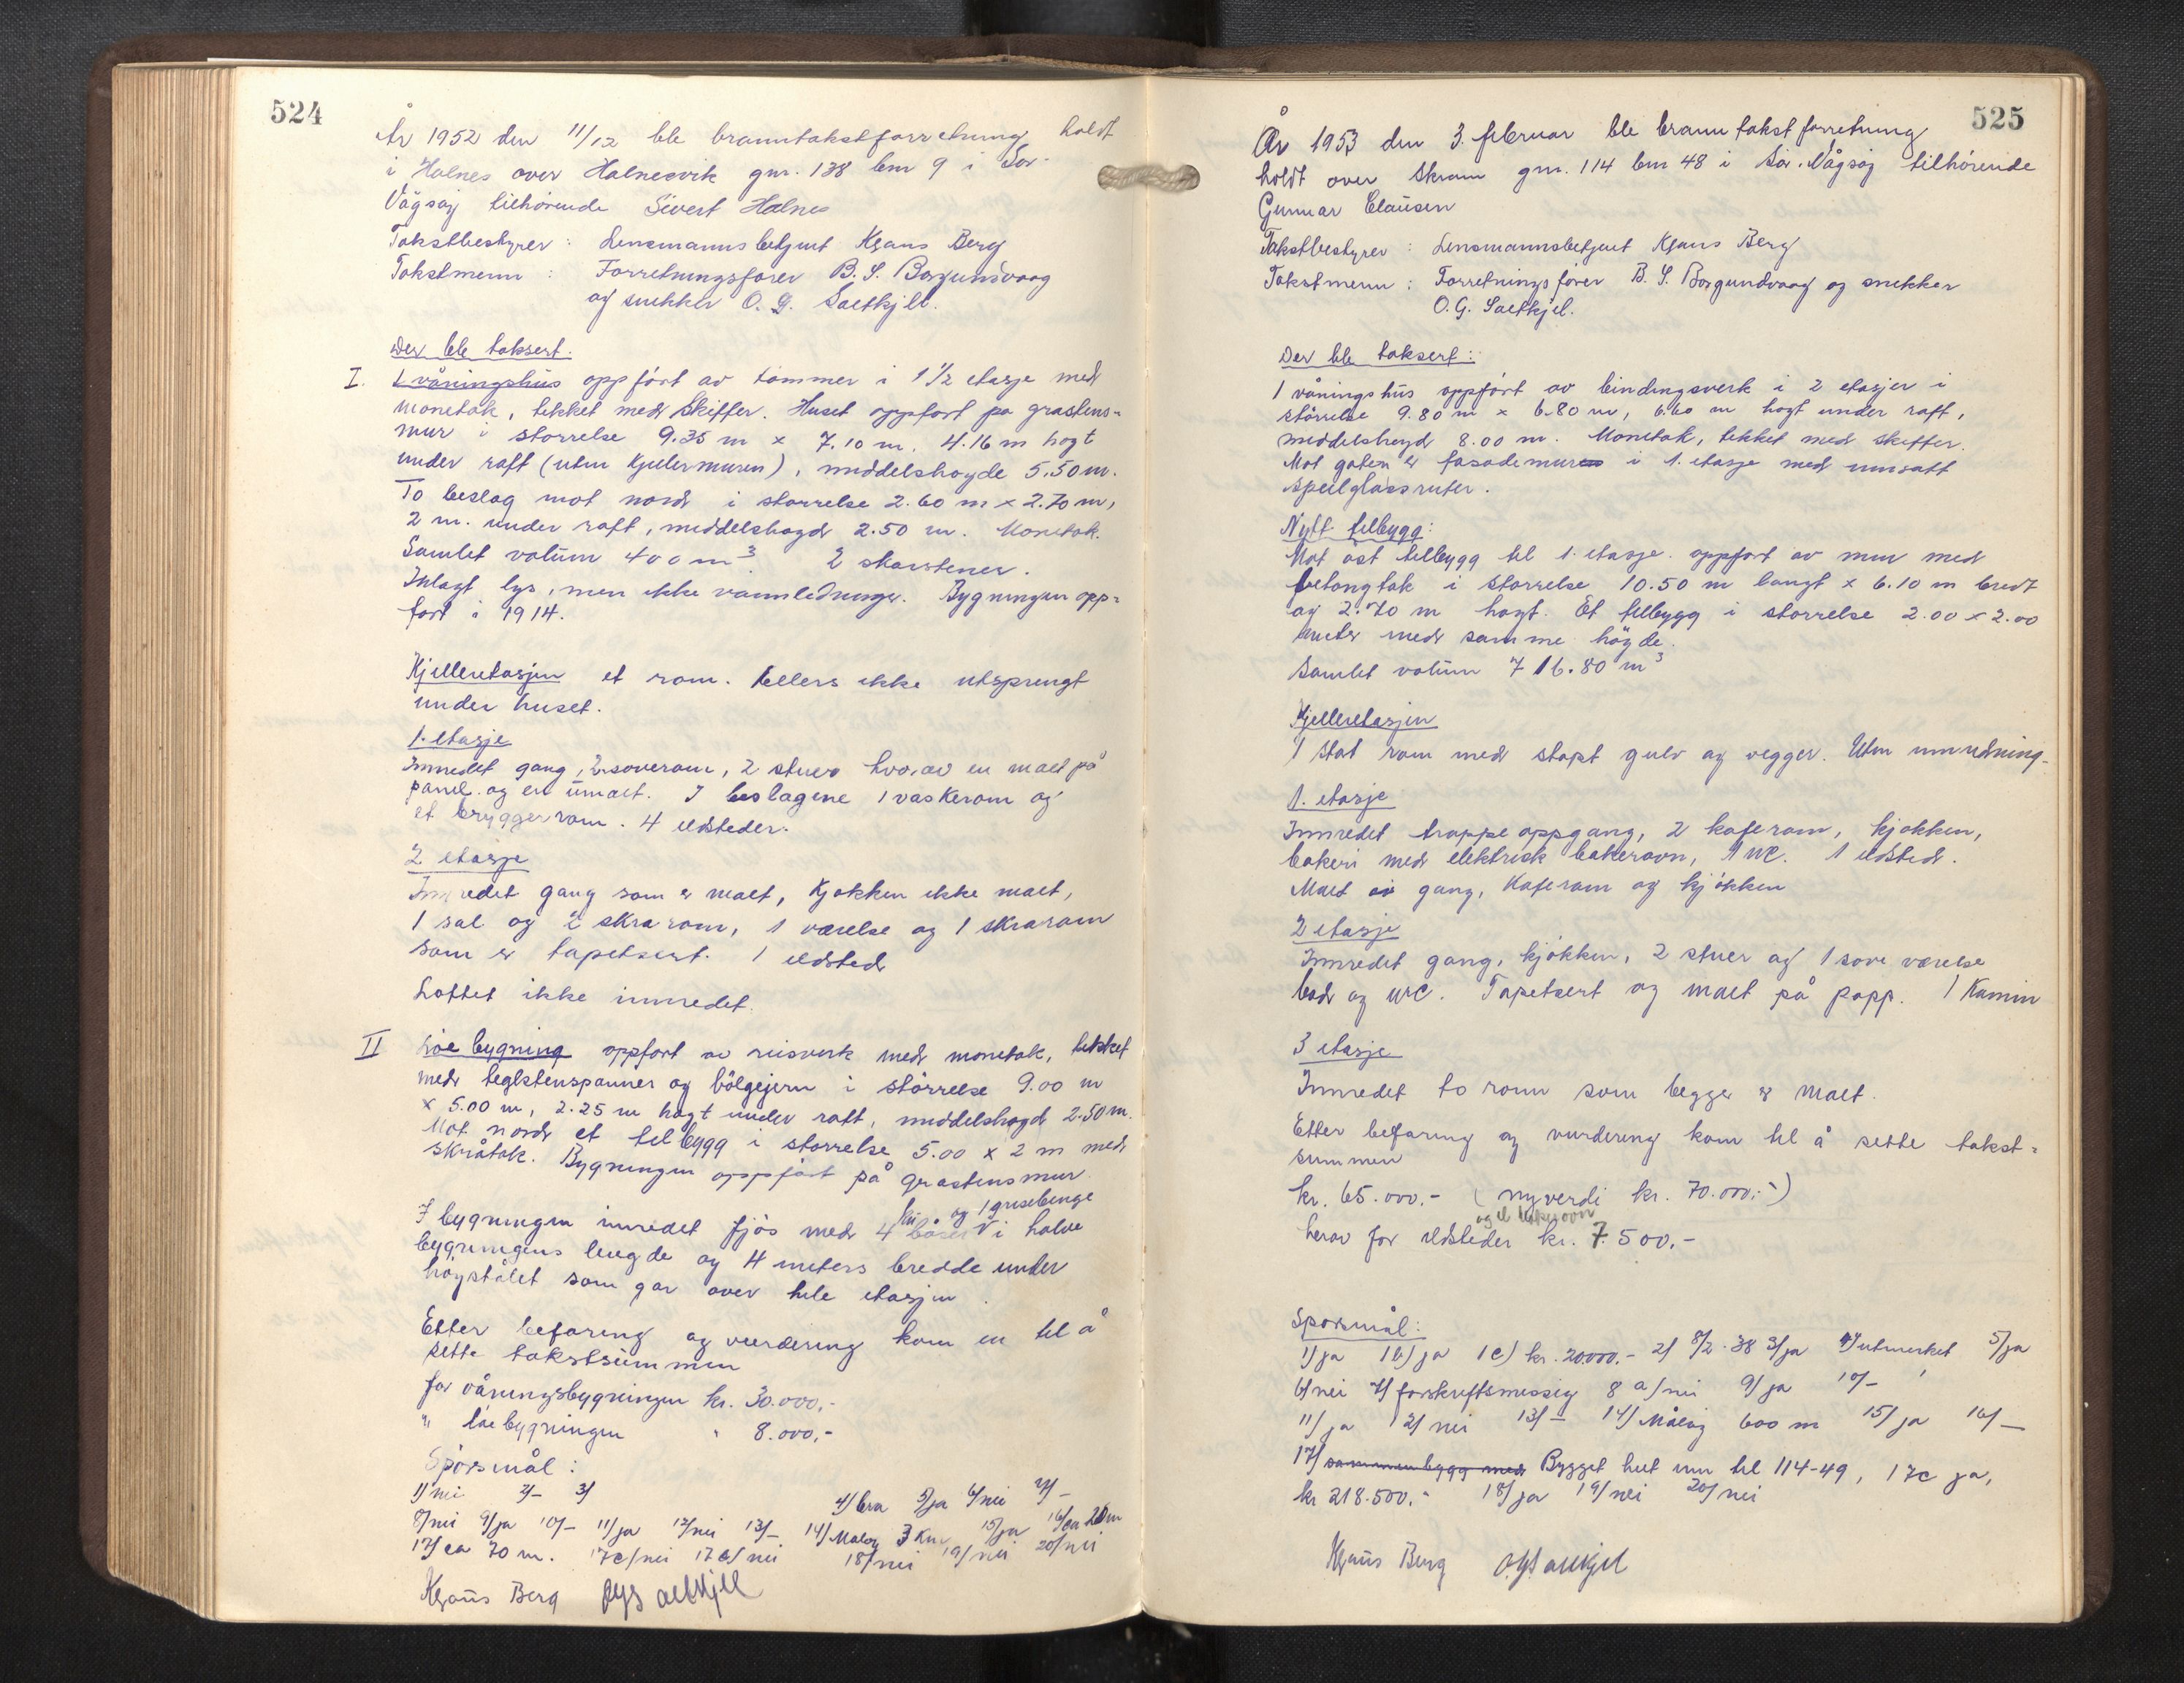 524
År 1952 den 11/12 ble branntakstforretning holdt
i Halnes over Halnesvik gnr. 138 bnr 9 i Sør-
Vågsøy tilhørende Sivert Halnes
Takstbestyrer : Lensmannsbetjent Klaus Berg
Takstmenn : Forretningsfører B. S. Borgundvaag
og snekker O. G. Saetkjel.
Der ble taksert:
I. 1 våningshus oppført av tømmer i 1 1/2 etasje med
mønetak, tekket med skiffer. Huset oppført på gråstens-
mur i størrelse 9.35 m x 7.10 m. 4.16 m høgt
under raft (uten kjellermuren), middelshøyde 5.50 m.
To beslag mot nord i størrelse 2.60 m x 2.70 m,
2 m. under raft, middelshøgd 2.50 m. Mønetak.
Samlet volum 400 m³ 2 skorstener.
Inlagt lys, men ikke vannledninger. Bygningen opp-
ført i 1914.
Kjelleretasjen et rom. Ellers ikke utsprengt
under huset.
1. etasje
Innredet gang, 2 soverom, 2 stuer hvorav en malt på
panel og en umalt. I beslagene 1 vaskerom og
et bryggerrom. 4 ildsteder.
2 etasje
Innredet gang som er malt, kjøkken ikke malt,
1 sal og 2 skrårom, 1 værelse og 1 skrårom
som er tapetsert. 1 ildsted
Loftet ikke innredet.
II Løebygning oppført av reisverk med mønetak, tekket
med teglstenspanner og bølgejern i størrelse 9.00 m
x 5.00 m, 2.25 m høgt under raft, middelshøgd 2.50 m.
Mot nord et tilbygg i størrelse 5.00 x 2 m med
skråtak. Bygningen oppført på gråstensmur.
ku- og 1 grisebinge
I bygningen innredet fjøs med 4 båser i halve
bygningens lengde og 4 meters bredde under
høystålet som går over hele etasjen.
Etter befaring og vurdering kom en til å
sette takstsummen
for våningsbygningen kr. 30.000,-
" løebygningen " 8.000,-
Spørsmål :
1/ nei 2/- 3/ 4/ bra 5/ja 6/nei 7/-
8/nei 9/ja 10/- 11/ja 12/nei 13/- 14/ Måløy 3 km 15/ja 16/ca 20 m
17/ ca 70 m. 17c/nei 17d/nei 18/nei 19/nei 20/nei
Klaus Berg OG Saetkjel
525
År 1953 den 3. februar ble branntakstforretning
holdt over Skram gnr. 114 bnr 48 i Sør-Vågsøy tilhørende
Gunnar Clausen
Takstbestyrer : Lensmannsbetjent Klaus Berg
Takstmenn : Forretningsfører B. S. Borgundvaag og snekker
O. G. Saetkjel.
Der ble taksert :
1 våningshus oppført av bindingsverk i 2 etasjer i
størrelse 9.80 m x 6.80 m, 6.60 m høgt under raft,
middelshøyd 8.00 m. Mønetak, tekket med skiffer.
Mot gaten er fasademuren i 1. etasje med innsatt
speilglassruter.
Nytt tilbygg:
Mot øst tilbygg til 1. etasje. oppført av mur med
betongtak i størrelse 10.50 m langt x 6.10 m bredt
og 2.70 m høgt. Et tilbygg i størrelse 2.00 x 2.00
meter med samme høgde.
Samlet volum 716.80 m³
Kjelleretasjen
1 stort rom med støpt gulv og vegger. Uten innredning.
1. etasje
Innredet trappeoppgang, 2 kaferom, kjøkken,
bakeri med elektrisk bakerovn, 1 WC. 1 ildsted.
Malt gang, kaferom og kjøkken
2 etasje
Innredet gang, kjøkken, 2 stuer og 1 soveværelse
bad og WC. Tapetsert og malt på papp. 1 Kamin
3 etasje
Innredet to rom som begge er malt.
Etter befaring og vurdering kom til å sette takst-
summen
kr. 65.000.- (nyverdi kr. 70.000,-)
og el bakerovn
herav for ildsteder kr. 7.500,-
Spørsmål:
1/ja 1b/ja 1c) kr. 20.000,- 2/ 8/2-38 3/ja 4/utmerket 5/ja
6/nei 7/ forskriftsmessig 8a/nei 9/ja 10/-
11/ja 12/nei 13/- 14/ Måløy 600 m 15/ja 16/-
17/ sammenbygg med Bygget helt inn til 114-49, 17c ja,
kr 218.500.- 18/ja 19/nei 20/nei
Klaus Berg O.G. Saetkjel